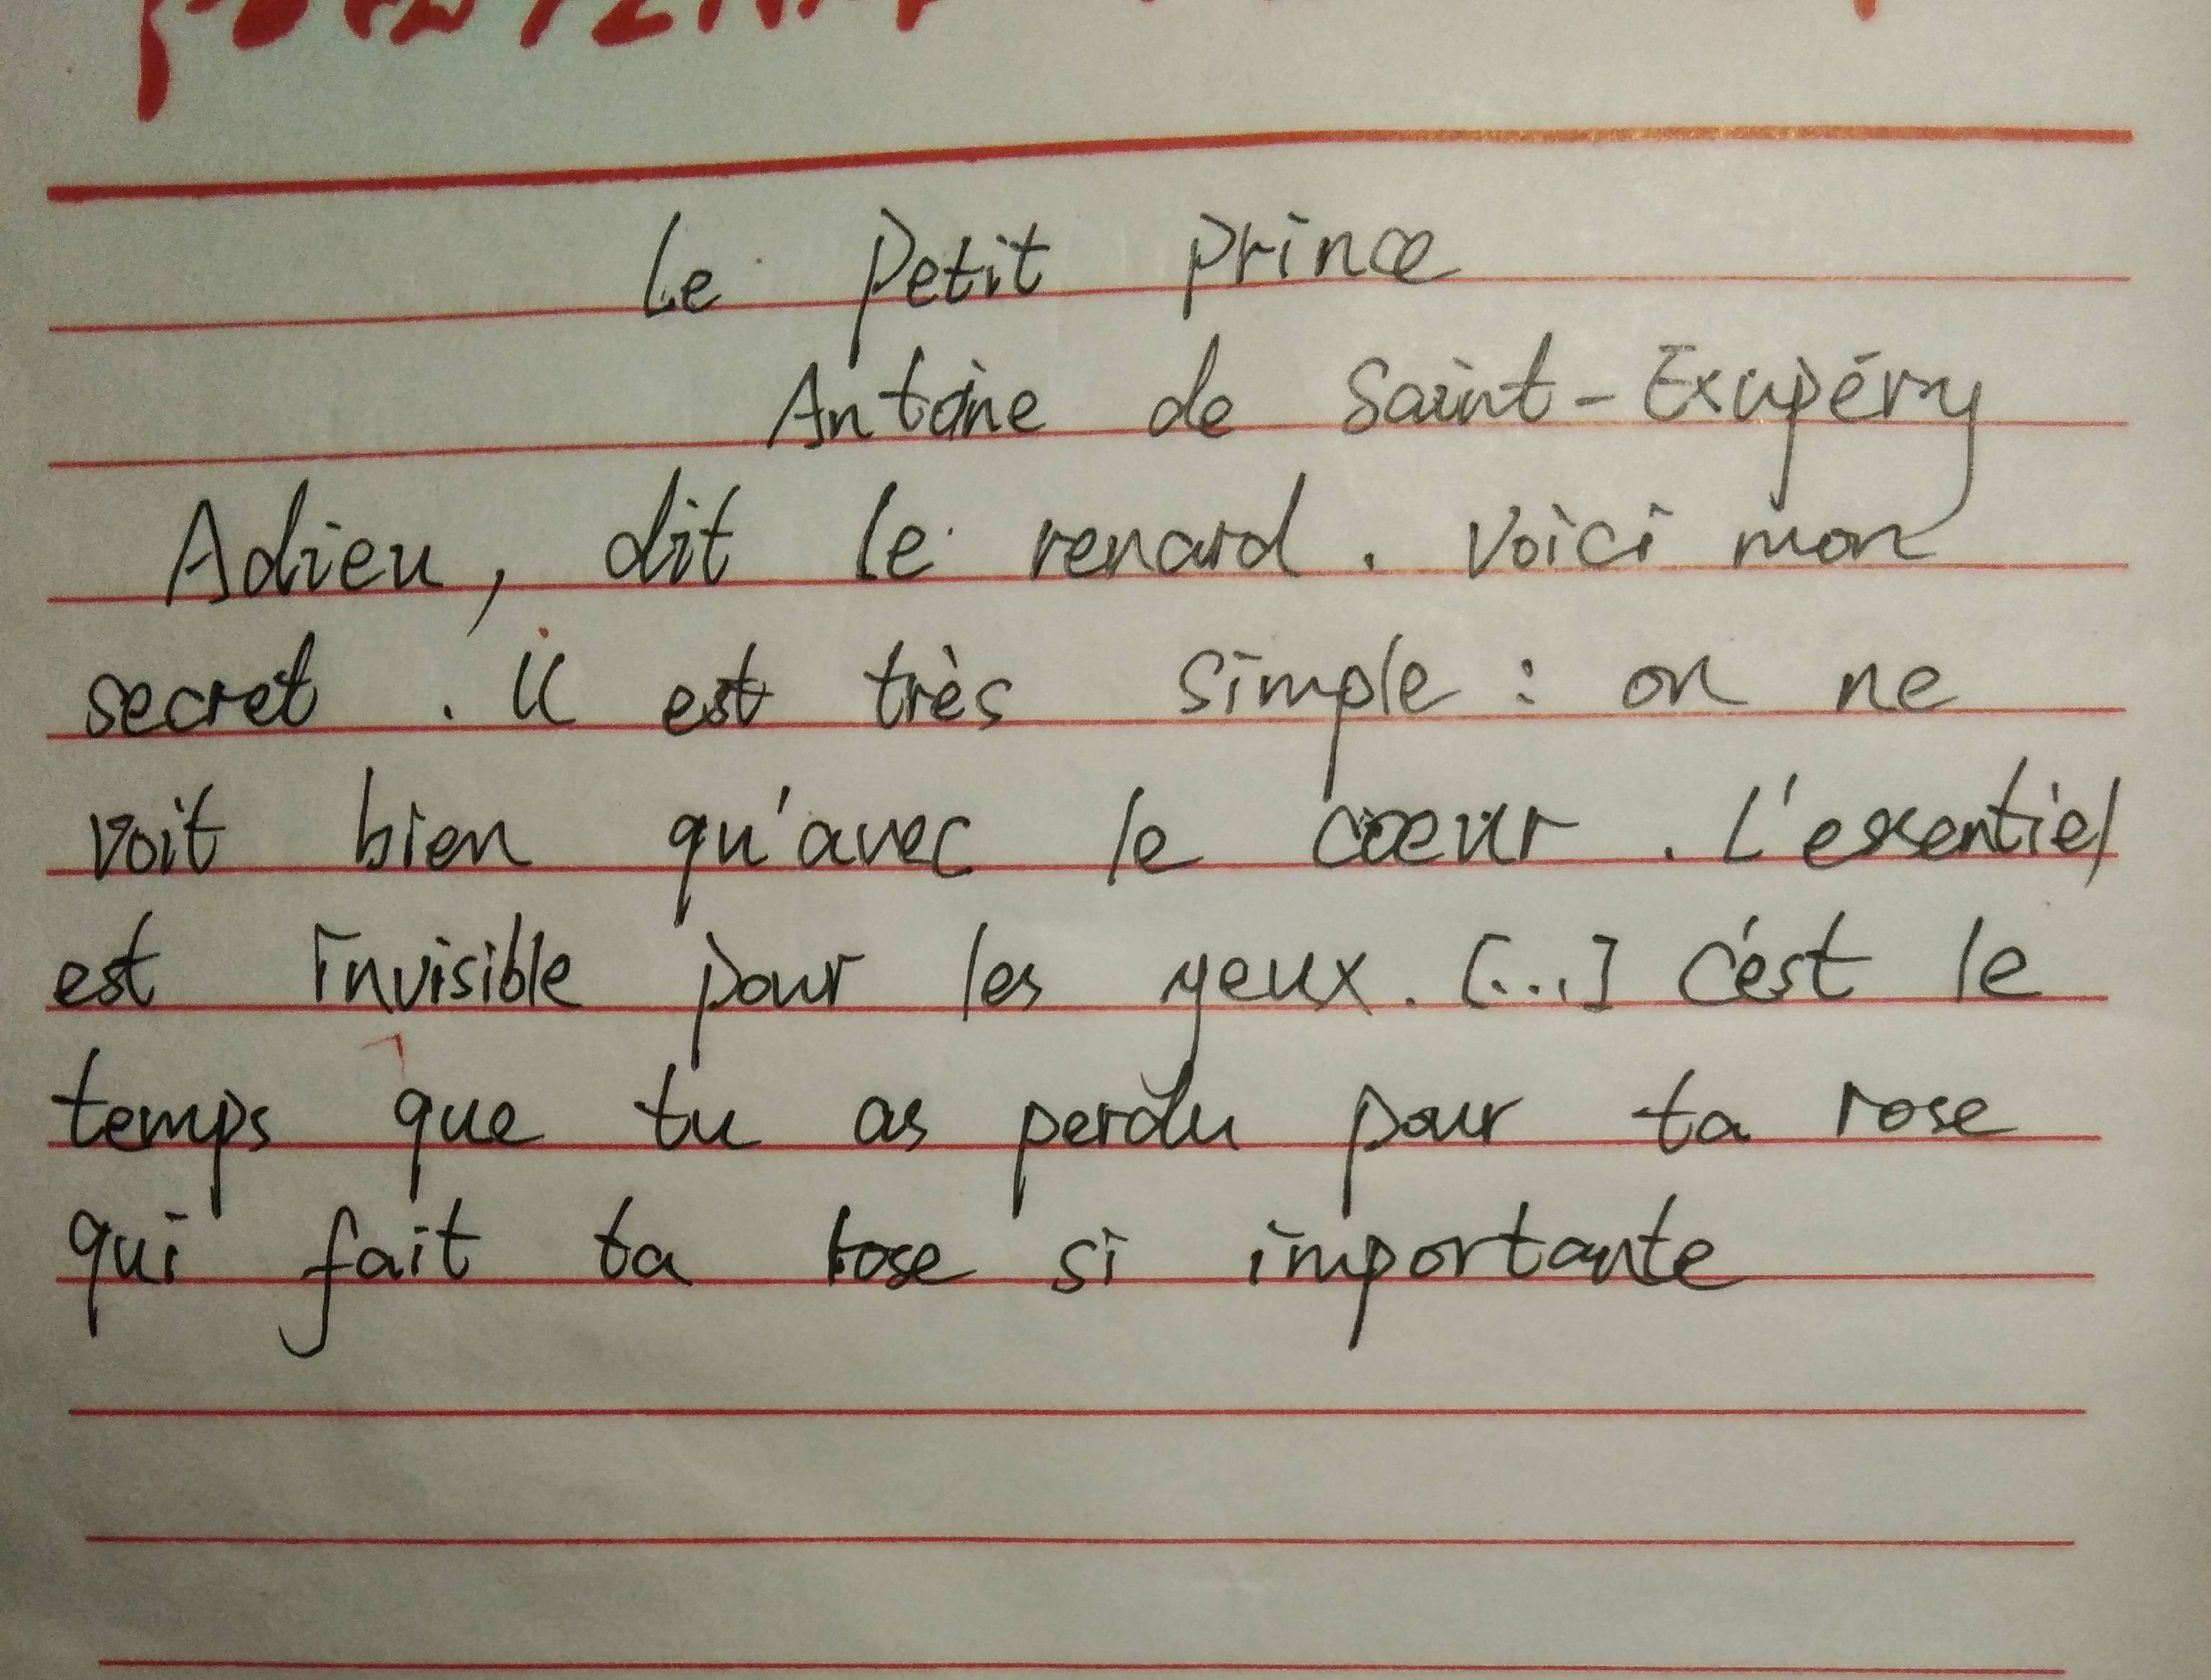 Le Petit Prince
Antoine de Saint-Exupéry
Adieu, dit le renard. Voici mon
secret. il est très simple : on ne
voit bien qu'avec le cœur. L'essentiel
est invisible pour les yeux. [...] c'est le
temps que tu as perdu pour ta rose
qui fait ta rose si importante